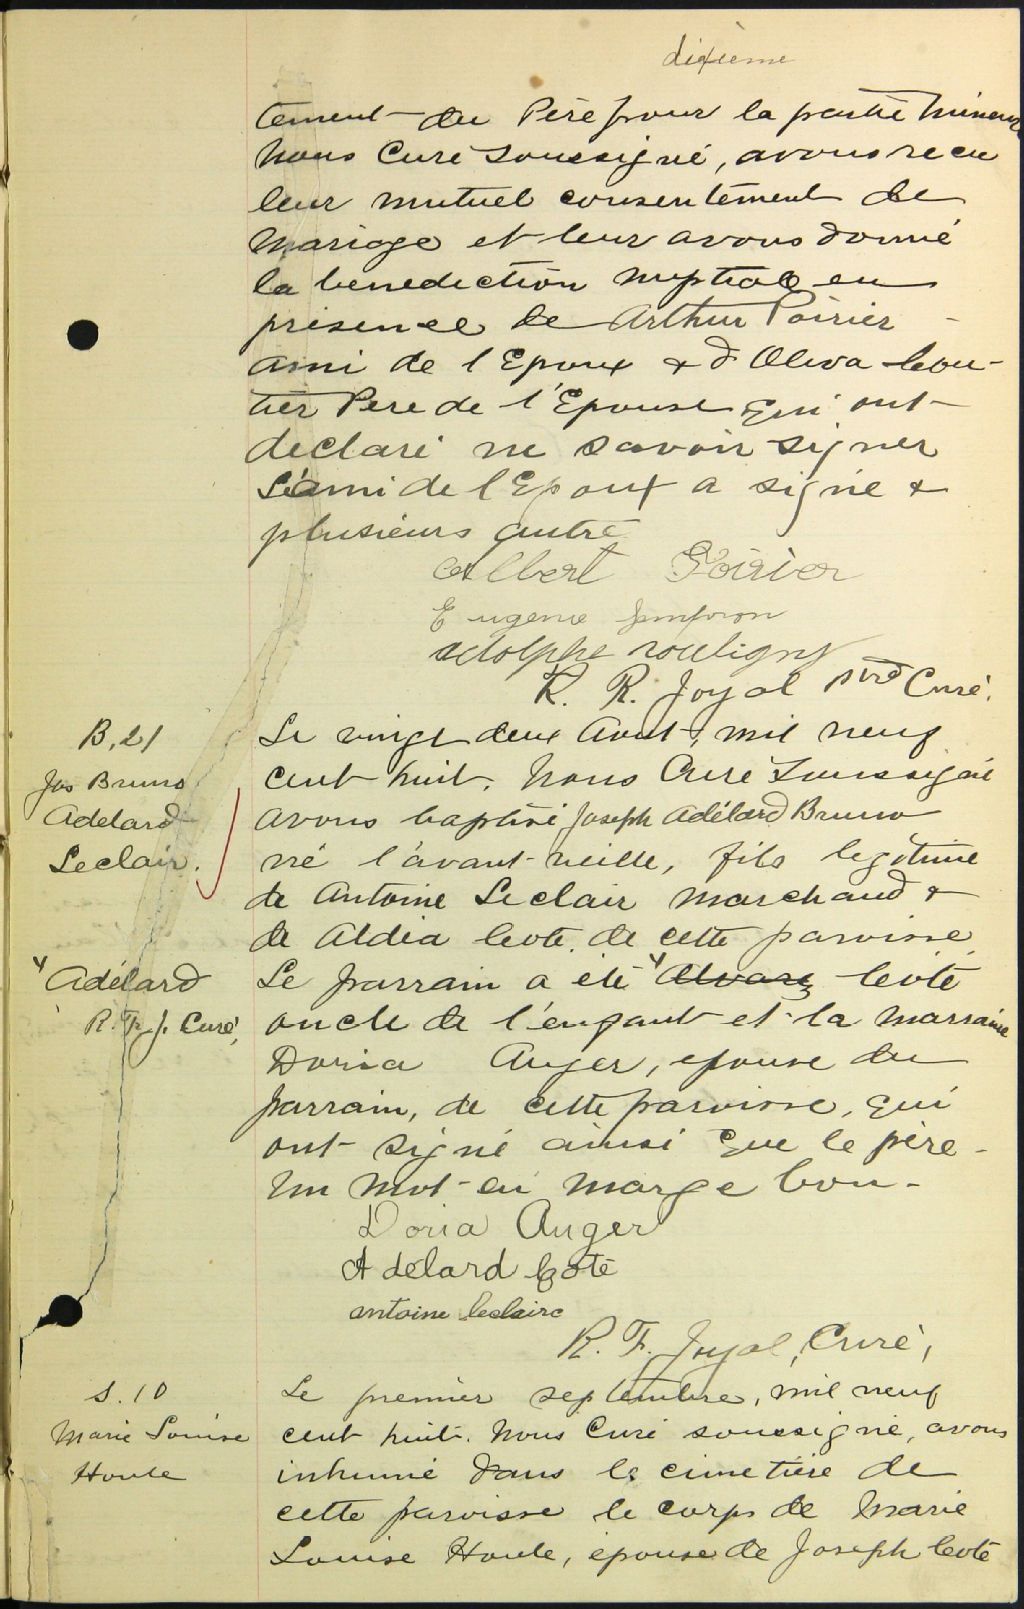 dixième
tement du Père pour la partie mineure
Nous Curé soussigné, avons recu
leur mutuel consentement de
Mariage et leur avons donné
la benediction nuptiale en
présence de Arthur Poirier
ami de l'Epoux & d'Oliva Cou-
tier Pere de l'Epouse qui ont
declaré ne savoir signer
L'ami de l'Epoux a signé &
plusieurs autre
Albert Poirier
Eugenie
Adolphe Rouligny
R. R. Joyal Ptre Curé.
B, 21
Jos Bruno
Adelard
Leclair.
Le vingt deux Aout, mil neuf
cent huit. Nous Curé Soussigné
avons baptisé Joseph Adélard Bruno
né l'avant-veille, fils legitime
de Antoine Leclair Marchand &
de Aldéa Coté, de cette paroisse
Le parrain a été Alvarez Côté
Adélard
R. F. J. Curé,
oncle de l'enfant et la Marraine
Doria Auger, epouse du
parrain, de cette paroisse, qui
ont signé ainsi que le père -
Un Mot en Marge bon -
Doria Auger
Adélard Coté
Antoine Leclaire
R. F. Joyal, Curé,
S. 10
Marie Louise
Houle
Le premier septembre, mil neuf
cent huit. Nous Curé soussigné, avons
inhumé dans le cimetière de
cette paroisse le corps de Marie
Louise Houle, épouse de Joseph Coté